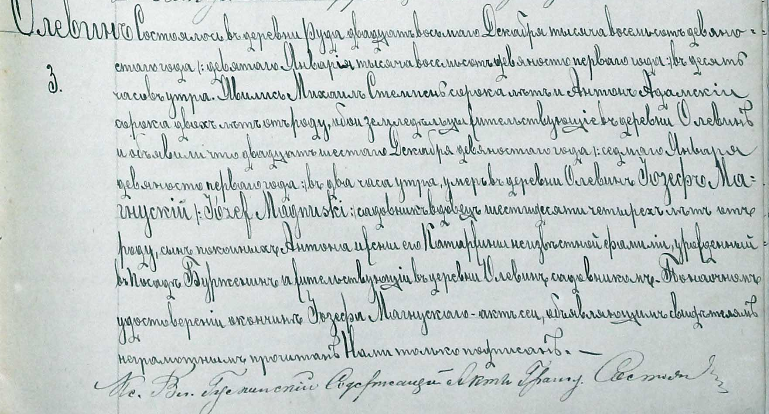 Олевинъ Состоялось въ деревни Руда двадцать восьмаго Декабря тысяча восемьсотъ девяно-
3. стаго года /: девятаго Января тысяча восемьсотъ девяносто перваго года :/ въ десять
часовъ утра. Явились Михаилъ сорока лѣтъ и Антонъ Адамскій
сорока двохъ лѣтъ отъ роду, обои земледѣльцы жительствующіе въ деревни Олевинъ
и объявили что двадцать шестаго Декабря девяностаго года /: седмаго Января
девяносто перваго года :/ въ два часа утра, умеръ въ деревни Олевинъ Іозефъ Ма-
гнускій /: Józef Magnuski :/ садовникъ вдовецъ шестидесяти четырехъ лѣтъ отъ
роду, сынъ покойныхъ Антона и жени его Катаржини неизвѣстной фамиліи, урожденный
въ посадѣ Бурженинъ а жительствующій въ деревни Олевинъ садовникомъ. - По наочномъ
удостовереніи окончинѣ Іозефа Магнускаго - актъ сей, объявляющимъ свидѣтелямъ
неграмотнымъ прочитанъ Нами только подписанъ. —
Кс. Вл. Содержащій Акты Гражд. Состоян